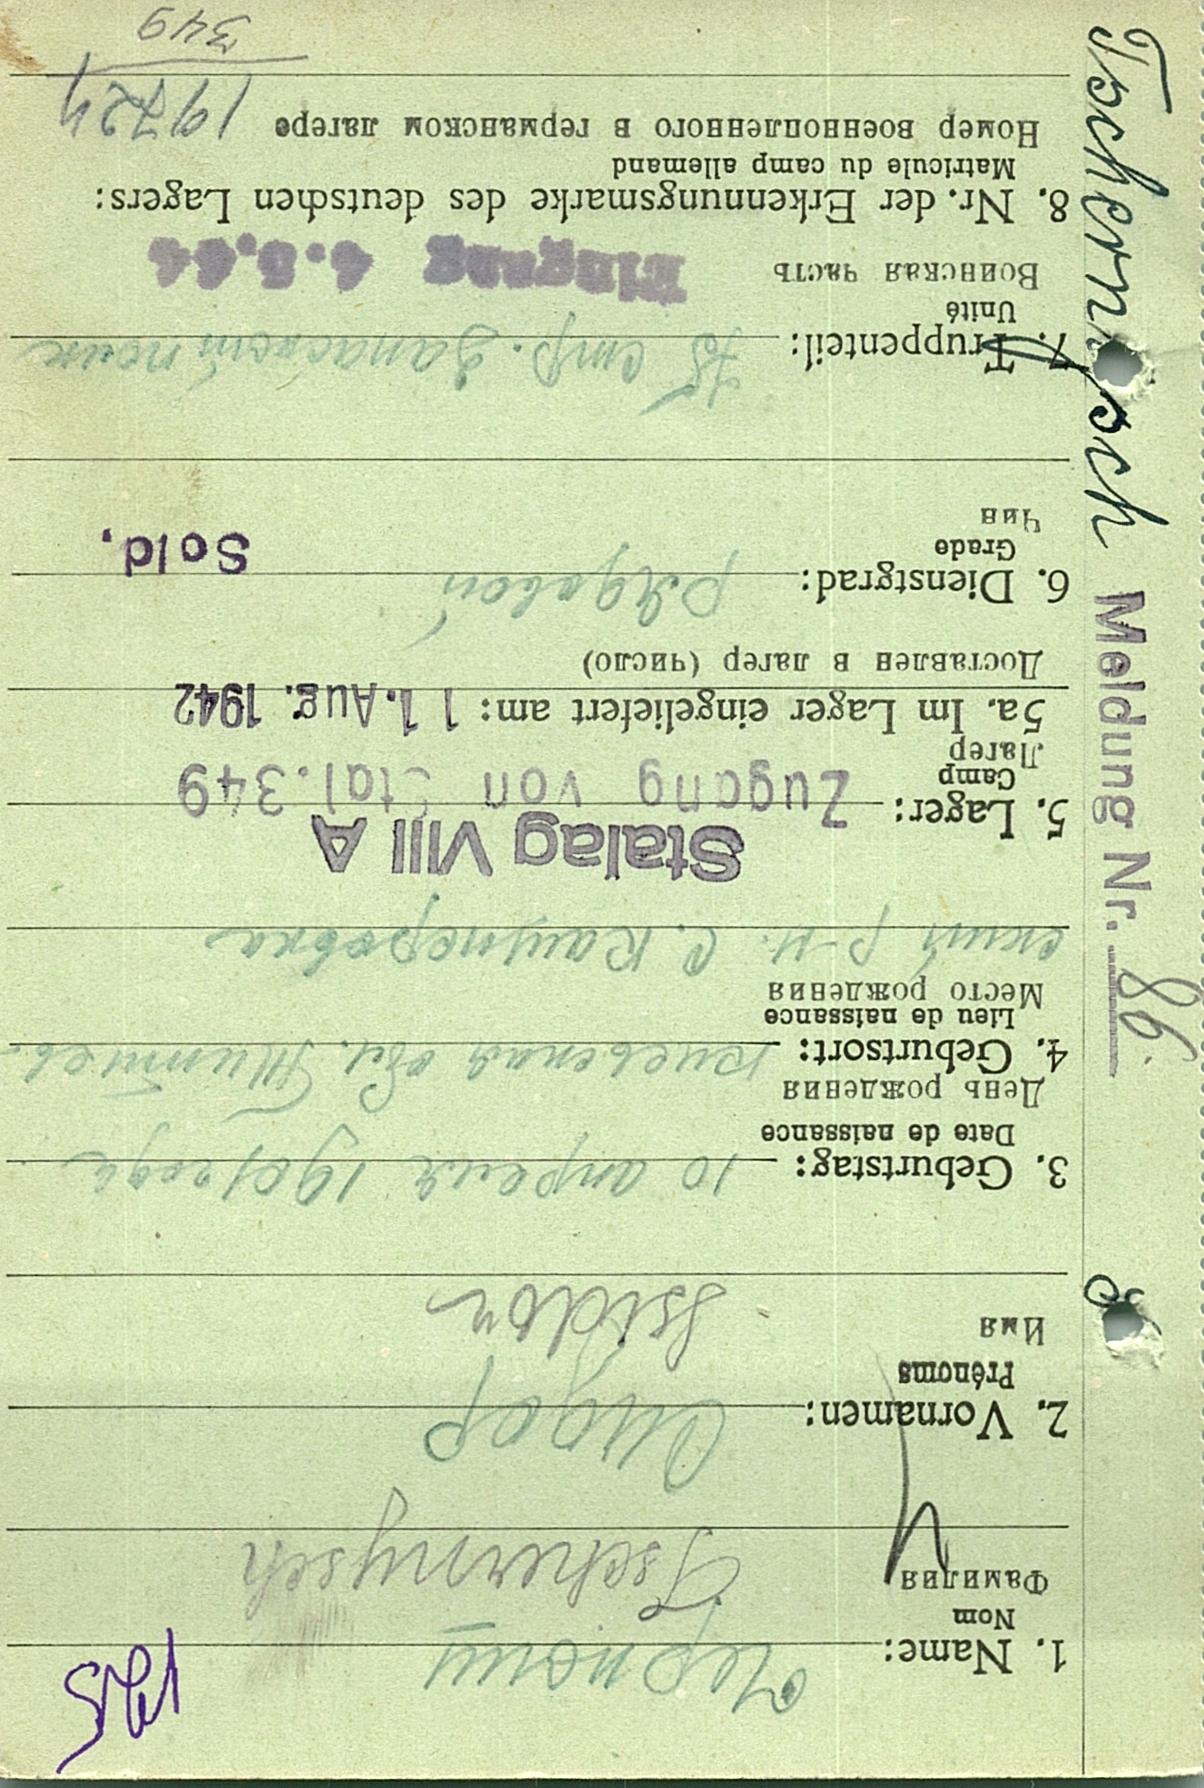 1. Name: Черныш
Nom
Фамилия
Tschernysch
2. Vornamen: Сидор
Prénoms
Имя
Ssidor
3. Geburtstag: 10 апреля 1901 года
Date de naissance
День рождения
4. Geburtsort: Киевская обл.
Lieu de naissance
Место рождения
ский р-н. с.
Stalag VIII A
5. Lager: Zugang von Stal. 349
Camp
Лагер
5a. Im Lager eingeliefert am: 11. Aug. 1942
Доставлен в лагер (число)
6. Dienstgrad: рядовой Sold.
Grade
Чин
7. Truppenteil: стр. Запасной полк
Unité
Воинская часть
Eingang 4.5.44
8. Nr. der Erkennungsmarke des deutschen Lagers:
Matricule du camp allemand
Номер военнопленного в германском лагере 19724
349
Tschernysch
Meldung Nr. 86